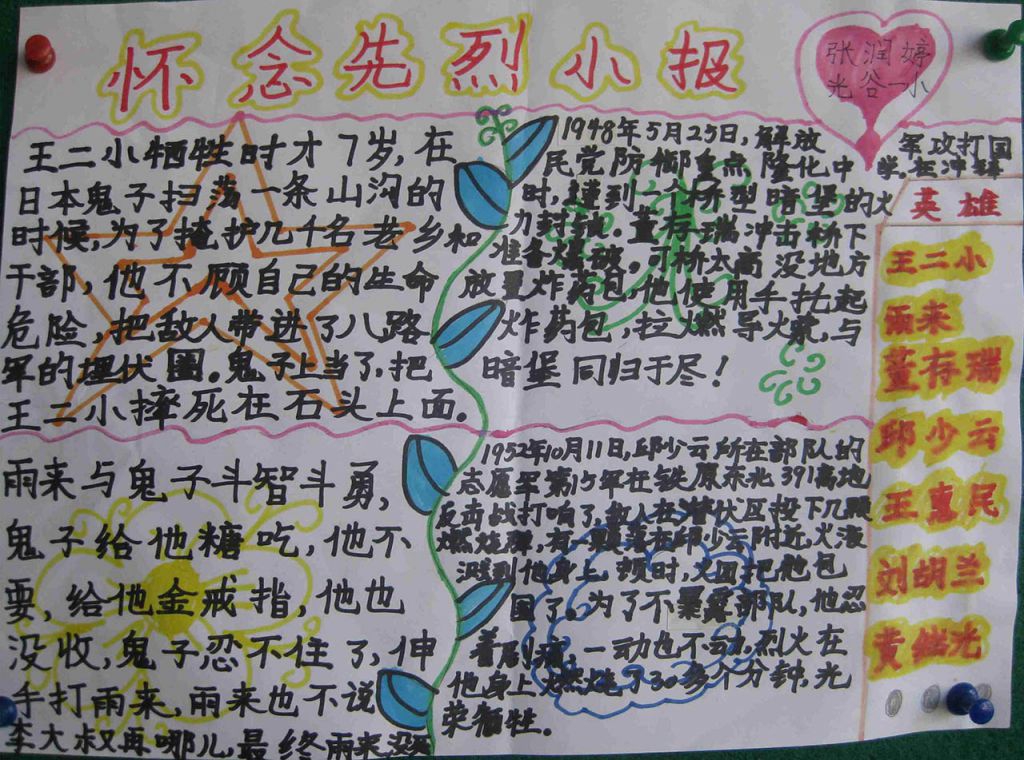 怀念先烈小报
张润婷
光谷一小
王二小牺牲时才7岁,在
日本鬼子扫荡一条山沟的
时候,为了掩护几千名老乡和
干部,他不顾自己的生命
危险,把敌人带进了八路
军的埋伏圈。鬼子上当了,把
王二小摔死在石头上面。
1948年5月25日,解放
军攻打国
民党防御重点隆化中
学,在冲锋
时,遭到一个桥型暗堡的火
力封锁。董存瑞冲击桥下
准备爆破。可桥太高没地方
放置炸药包,他使用手托起
炸药包,拉燃导火索,与
暗堡同归于尽!
雨来与鬼子斗智斗勇,
鬼子给他糖吃,他不
要,给他金戒指,他也
没收,鬼子忍不住了,伸
手打雨来,雨来也不说
李大叔再哪儿,最终雨来没死
1952年10月11日,邱少云所在部队的
志愿军第15军在铁原东北391高地
反击战打响了,敌人在潜伏区投下几颗
燃烧弹,有一颗落在邱少云附近,火液
溅到他身上,顿时,火团把他包
围了。为了不暴露部队,他忍
着剧痛,一动也不动,烈火在
他身上燃烧了30多个分钟,光
荣牺牲。
英雄
王二小
雨来
董存瑞
邱少云
王惠民
刘胡兰
黄继光